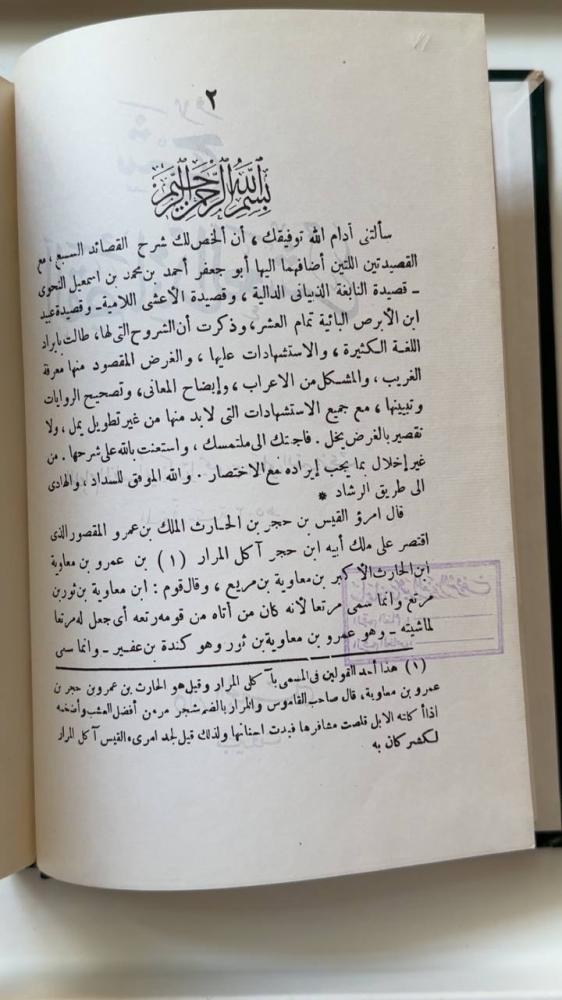 ٢
بسم الله الرحمن الرحيم
سألتنى أدام الله توفيقك، أن ألخص لك شرح القصائد السبع، مع
القصيدتين اللتين أضافهما اليها أبو جعفر أحمد بن محمد بن اسمعيل النحوى
ـ قصيدة النابغة الذبيانى الدالية، وقصيدة الأعشى اللامية ـ وقصيدة عبيد
ابن الأبرص البائية تمام العشر، وذكرت أن الشروح التى لها، طالت بايراد
اللغة الكثيرة، والاستشهادات عليها، والغرض المقصود منها معرفة
الغريب، والمشكل من الاعراب، وإيضاح المعانى، وتصحيح الروايات
وتبيينها، مع جميع الاستشهادات التى لابد منها من غير تطويل يمل، ولا
تقصير بالغرض يخل. فاجبتك الى ملتمسك، واستعنت بالله على شرحها. من
غير إخلال بما يجب إيراده مع الاختصار. والله الموفق للسداد، والهادى
الى طريق الرشاد *
قال امرؤ القيس بن حجر بن الحارث الملك بن عمرو المقصور الذى
اقتصر على ملك أبيه ابن حجر آكل المرار (١) بن عمرو بن معاوية
ابن الحارث الأكبر بن معاوية بن مريع، وقال قوم: ابن معاوية بن ثور بن
مرتع وانما سمى مرتعا لأنه كان من أتاه من قومه رتعه أى جعل له مرتعا
لماشيته ـ وهو عمرو بن معاوية بن ثور وهو كندة بن عفير ـ وانما سمى
(١) هذا أحد القولين فى المسمى بآكل المرار وقيل هو الحارث بن عمرو بن حجر بن
عمرو بن معاوية، قال صاحب القاموس والمرار بالضم شجر مر من أفضل العشب وأضخمه
اذا أكلته الابل قلصت مشافرها فبدت اسنانها ولذلك قيل لجد امرىء القيس آكل المرار
لكشر كان به